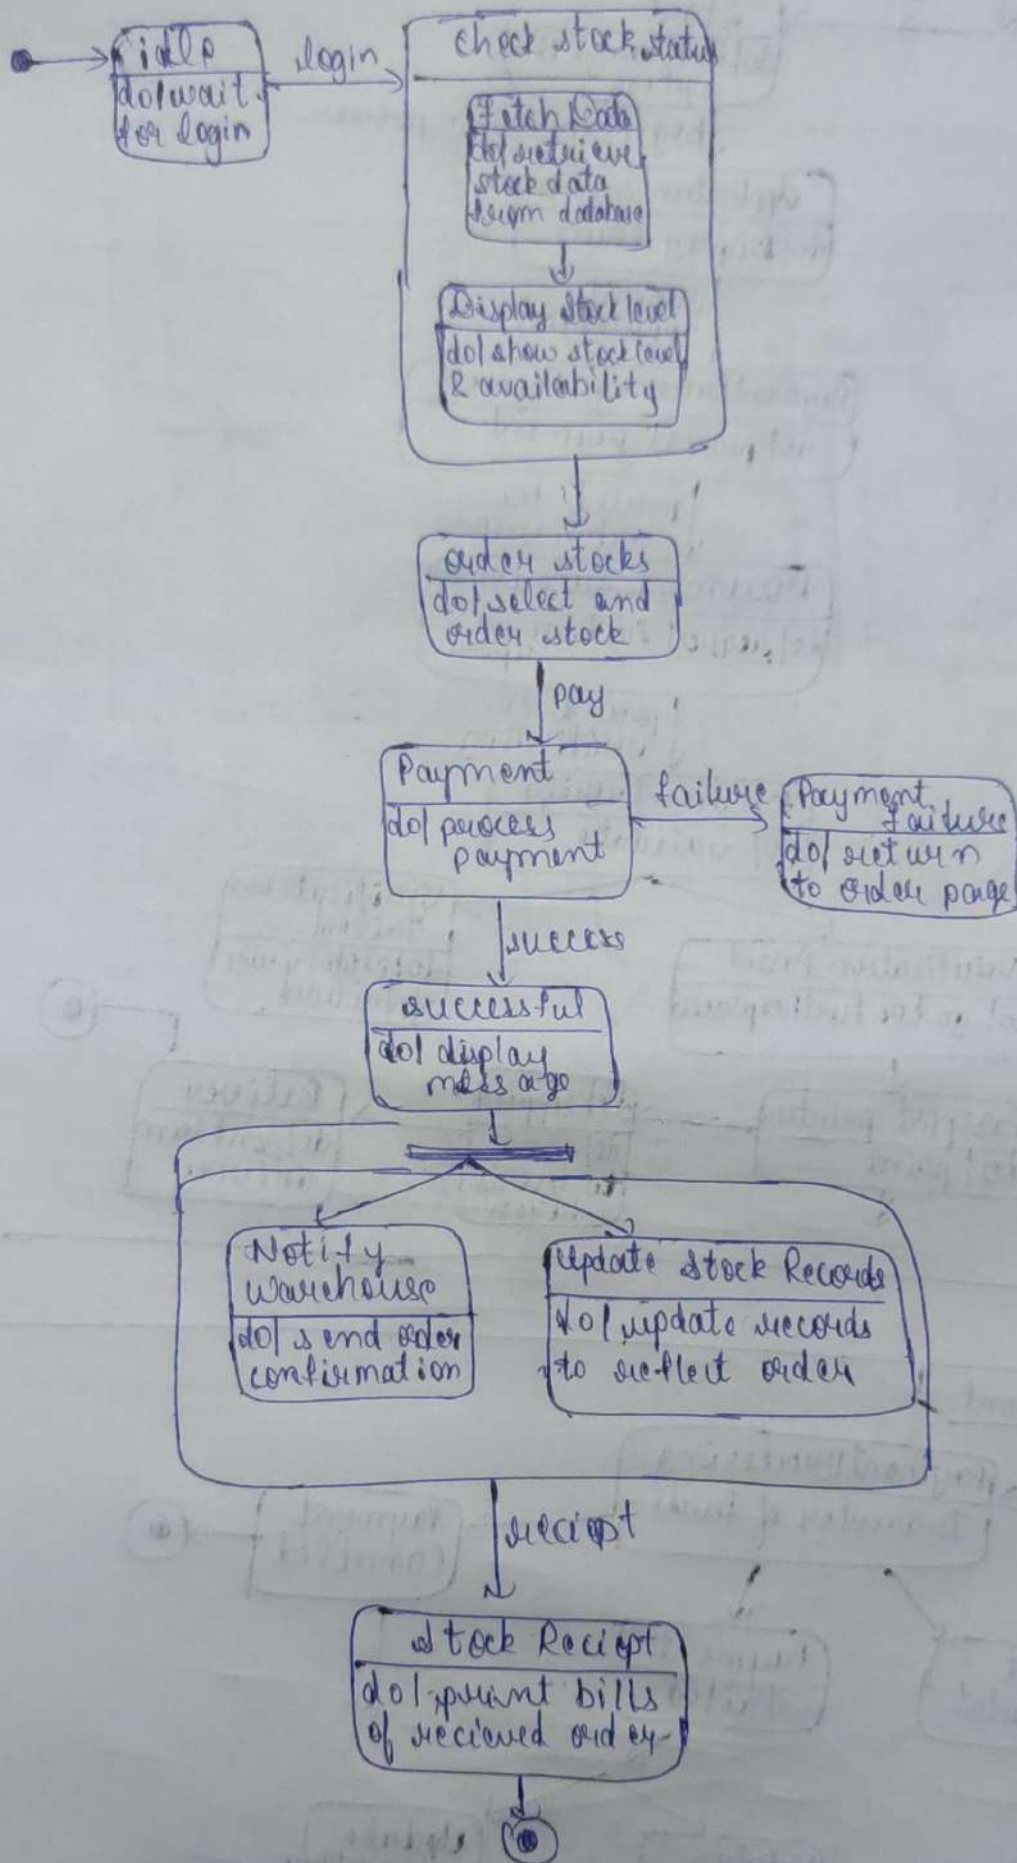 idle
do/wait
for login
login
check stock status
Fetch Data
do/retrieve
stock data
from database
Display stock level
do/show stock level
& availability
order stocks
do/select and
order stock
pay
Payment
do/process
payment
failure
Payment
failure
do/return
to order page
success
successful
do/display
message
Notify
warehouse
do/send order
confirmation
Update Stock Records
do/update records
to reflect order
reciept
Stock Reciept
do/print bills
of recieved order